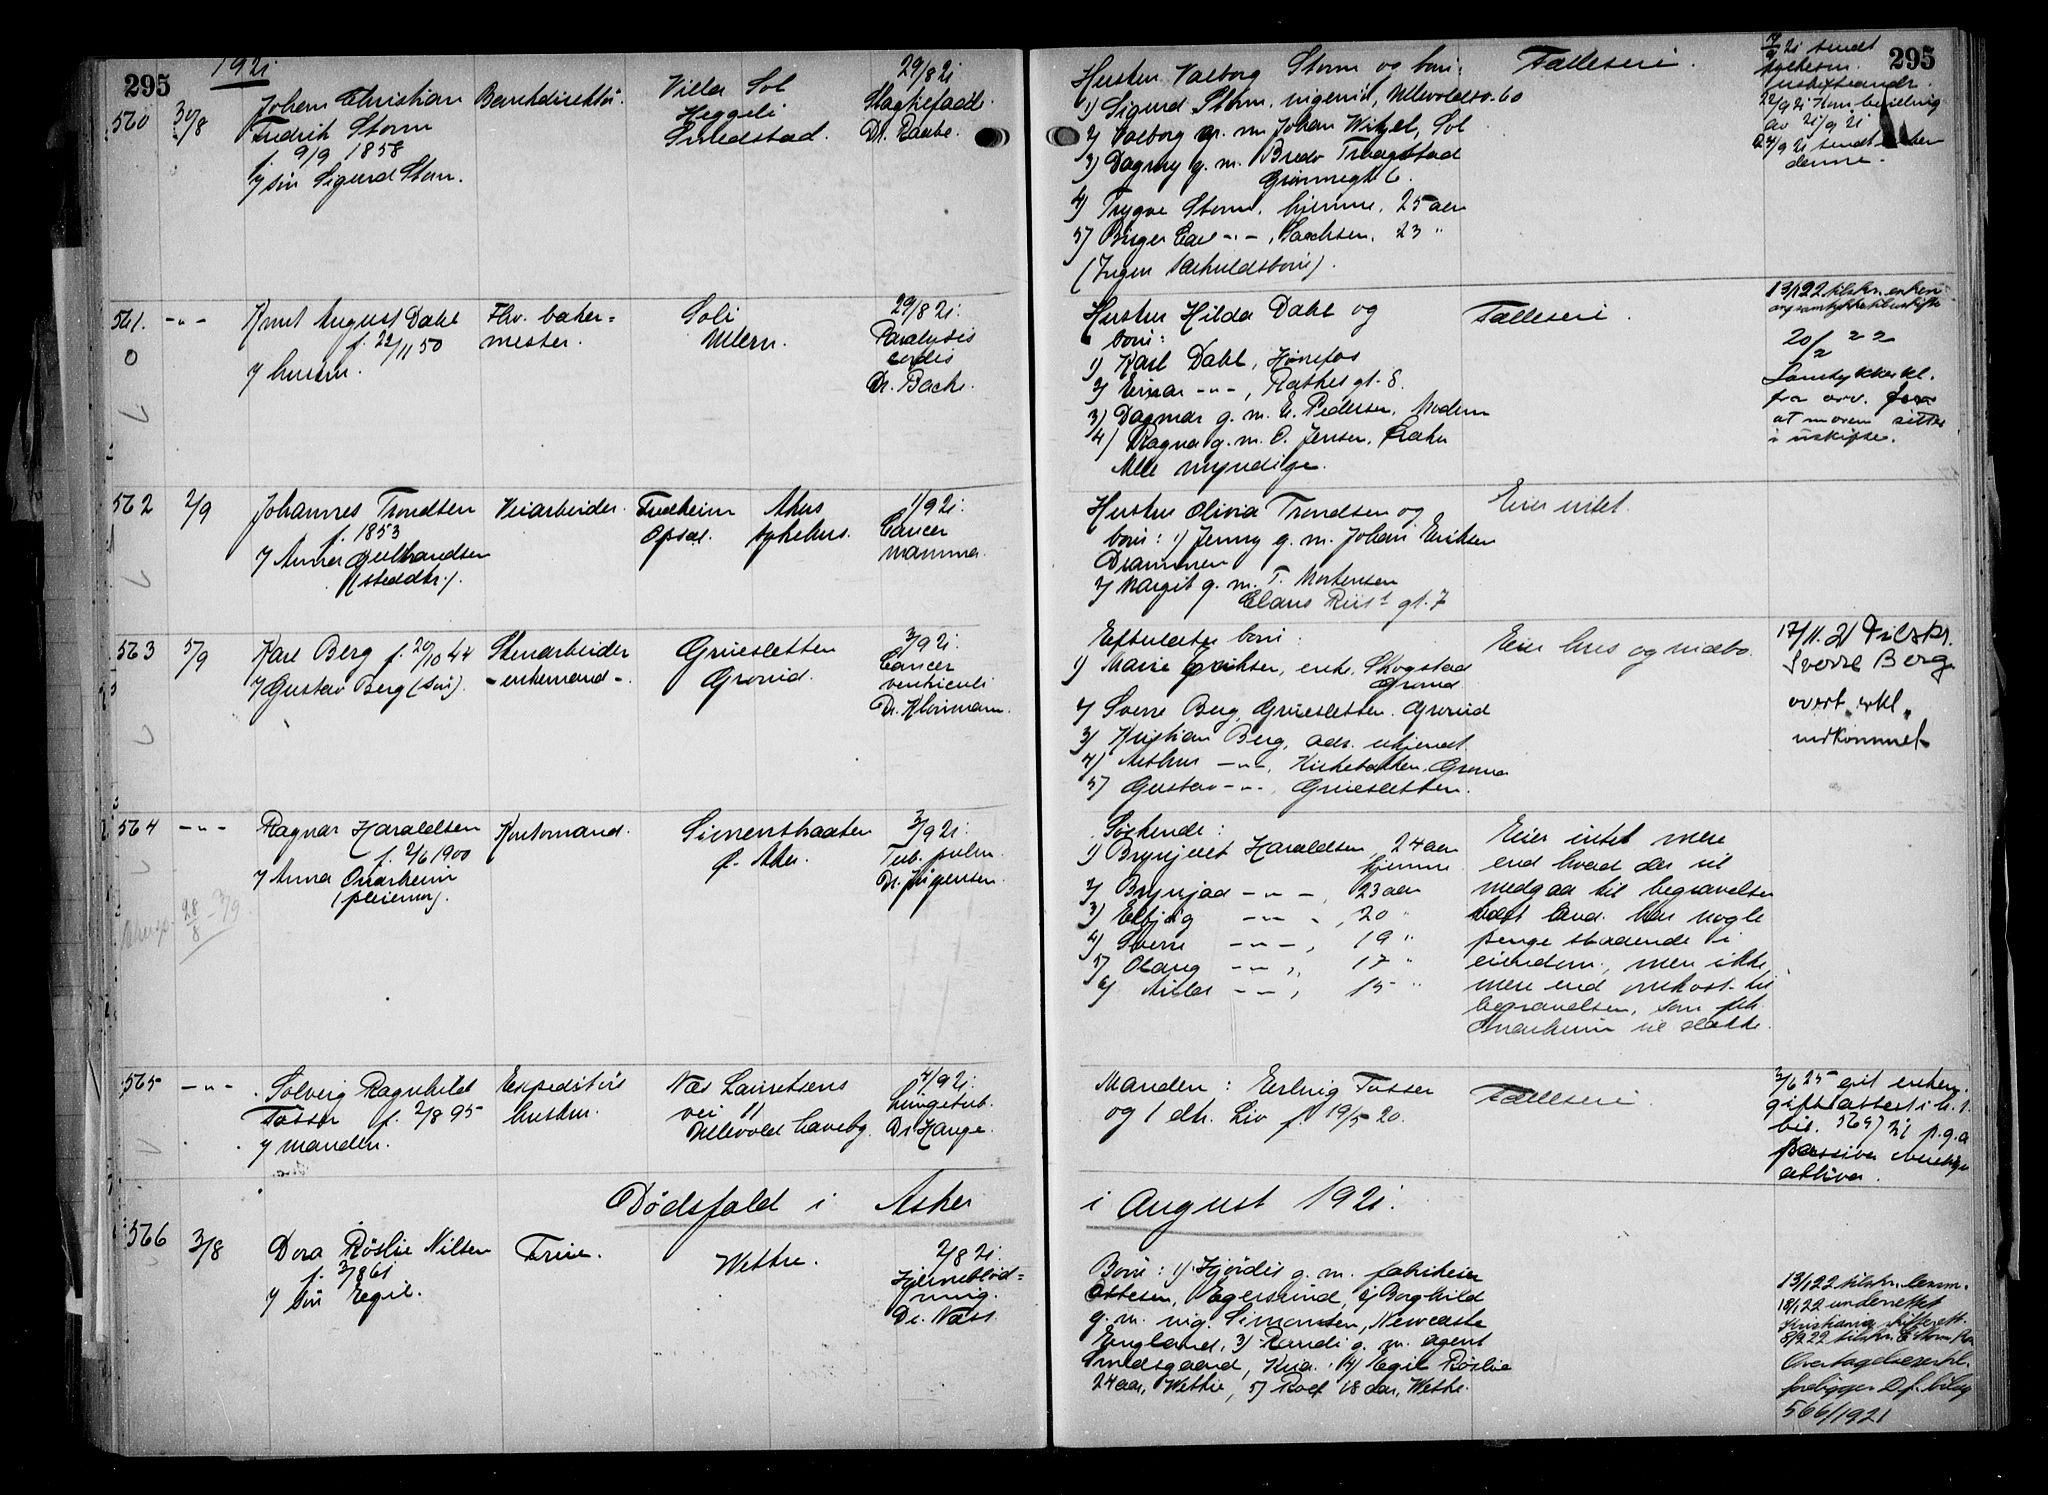 295
1921
560
30/8
Johan Christian
Fredrik Storm
f. 9/9 1858
v/ søn Sigurd Storm.
Bankdirektør.
Villa Sol
Heggeli
Smedstad.
29/8 21
Slagtilfælde.
Dr. Raabe.
561.
-"-
0
Knut August Dahl
f. 22/11 50
v/ hustru.
Fhv. baker=
mester.
Soli
Ullern.
29/8 21:
Paralysis
cordis
Dr. Bache.
562
2/9
Johannes Trondsen
f. 1853
v/ Anna Gulbrandsen
(steddtr.).
Veiarbeider.
Fredheim
Opsal.
Akers
sykehus.
1/9 21:
Cancer
mamma.
563
5/9
Karl Berg f. 20/10 44
v/ Gustav Berg (søn).
Stenarbeider
- enkemand -
Gruesletten
Grorud.
3/9 21:
Cancer
ventriculi
Dr.
564
-"-
Ragnar Haraldsen
f. 2/6 1900
v/ Anna Onarheim
(pleiemor).
28/8 - 3/9.
Kontormand.
Simenstraaten
Ø. Aker.
3/9 21:
Tub. pulm.
Dr. Jürgensen.
565
-"-
Solveig Ragnhild
Fosser f. 2/8 95
v/ manden.
Expeditørs
hustru.
Nils Lauritsens
vei 11
Ullevold haveby.
4/9 21:
Lungetub.
Dr. Hauge.
Dødsfald i Asker
566
3/8
Dora Røslie Nilsen
f. 3/8 61
v/ søn Egil.
Frue.
Wettre.
2/8 21:
Hjerneblød=
ning.
Dr. Næss.
295
Hustru Valborg Storm og børn:
1) Sigurd Storm, ingeniør, Ullevoldsv. 60
2) Valborg g. m. Johan Witzel, Sol
3) Dagny g. m. Bredo Tragstad
Grønnegt. 6.
4) Trygve Storm, hjemme, 25 aar
5) Birger Carl -"-, Sachsen, 23 "
(Ingen særkuldsbørn).
Fælleseie.
sendt
22/9 21
av 21/9 21
24/9 21 sendt enken
denne.
Hustru Hilda Dahl og
børn:
1) Karl Dahl, Hønefos
2) Einar -"-, Rathkes gt. 8.
3) Dagmar g. m. E. Pedersen, Modum
4) Ragna g. m. O. Jensen,
Alle myndige.
Fælleseie.
13/1 22 tilskr. enken
20/2 22
Samtykkerkl.
fra arv. for
at moren sitter
i uskifte.
Hustru Olivia Trondsen og
børn: 1) Jenny g. m. Johan Eriksen
Drammen
2) Margit g. m. T. Mortensen
Claus Riis' gt. 7
Eier intet.
Efterlater børn:
1) Marie Eriksen, enke, Skogstad
Grorud
2) Sverre Berg, Gruesletten, Grorud
3) Kristian Berg, adr. ukjendt
4) Arthur -"-, Kirkebakken, Grorud
5) Gustav -"-, Gruesletten.
Eier hus og indbo.
17/11. 21 Tilskr.
Sverre Berg
overt. erkl.
indkommet
Søskende:
1) Brynjulf Haraldsen 24 aar
hjemme
2) Brynjar -"-, 23 aar
3) -"-, 20 "
4) Sverre -"-, 19 "
5) Olaug -"-, 17 "
6) -"-, 15 "
Eier intet mere
end hvad der vil
medgaa til begravelse
har nogle
penge staaende i
eiendom, men ikke
mere end omkost. til
begravelsen, som frk.
Onarheim vil dække.
Manden: Erling Fosser
og 1 dtr. Liv f. 19/5 20.
Fælleseie.
3/6 25 git enkem.
gifteattest i h. t.
bil. 565/21 p.g.a
passiva
aktiva.
i August 1921.
Børn: 1) Hjørdis g. m. fabrikeier
Ottesen, Egersund, 2) Borghild
g. m. ing. Simonsen, Newcastle
England, 3) Randi g. m. agent
Smedsgaard, Kria. 4) Egil Røslie
24 aar, Wettre, 5) Rolf 18 aar, Wettre.
13/1 22 tilskr. lensm.
18/1 22 underrettet
Kristiania skifterett.
8/2 22 tilskr.
Overtagelseserkl.
foreligger D. f. bilag
566/1921